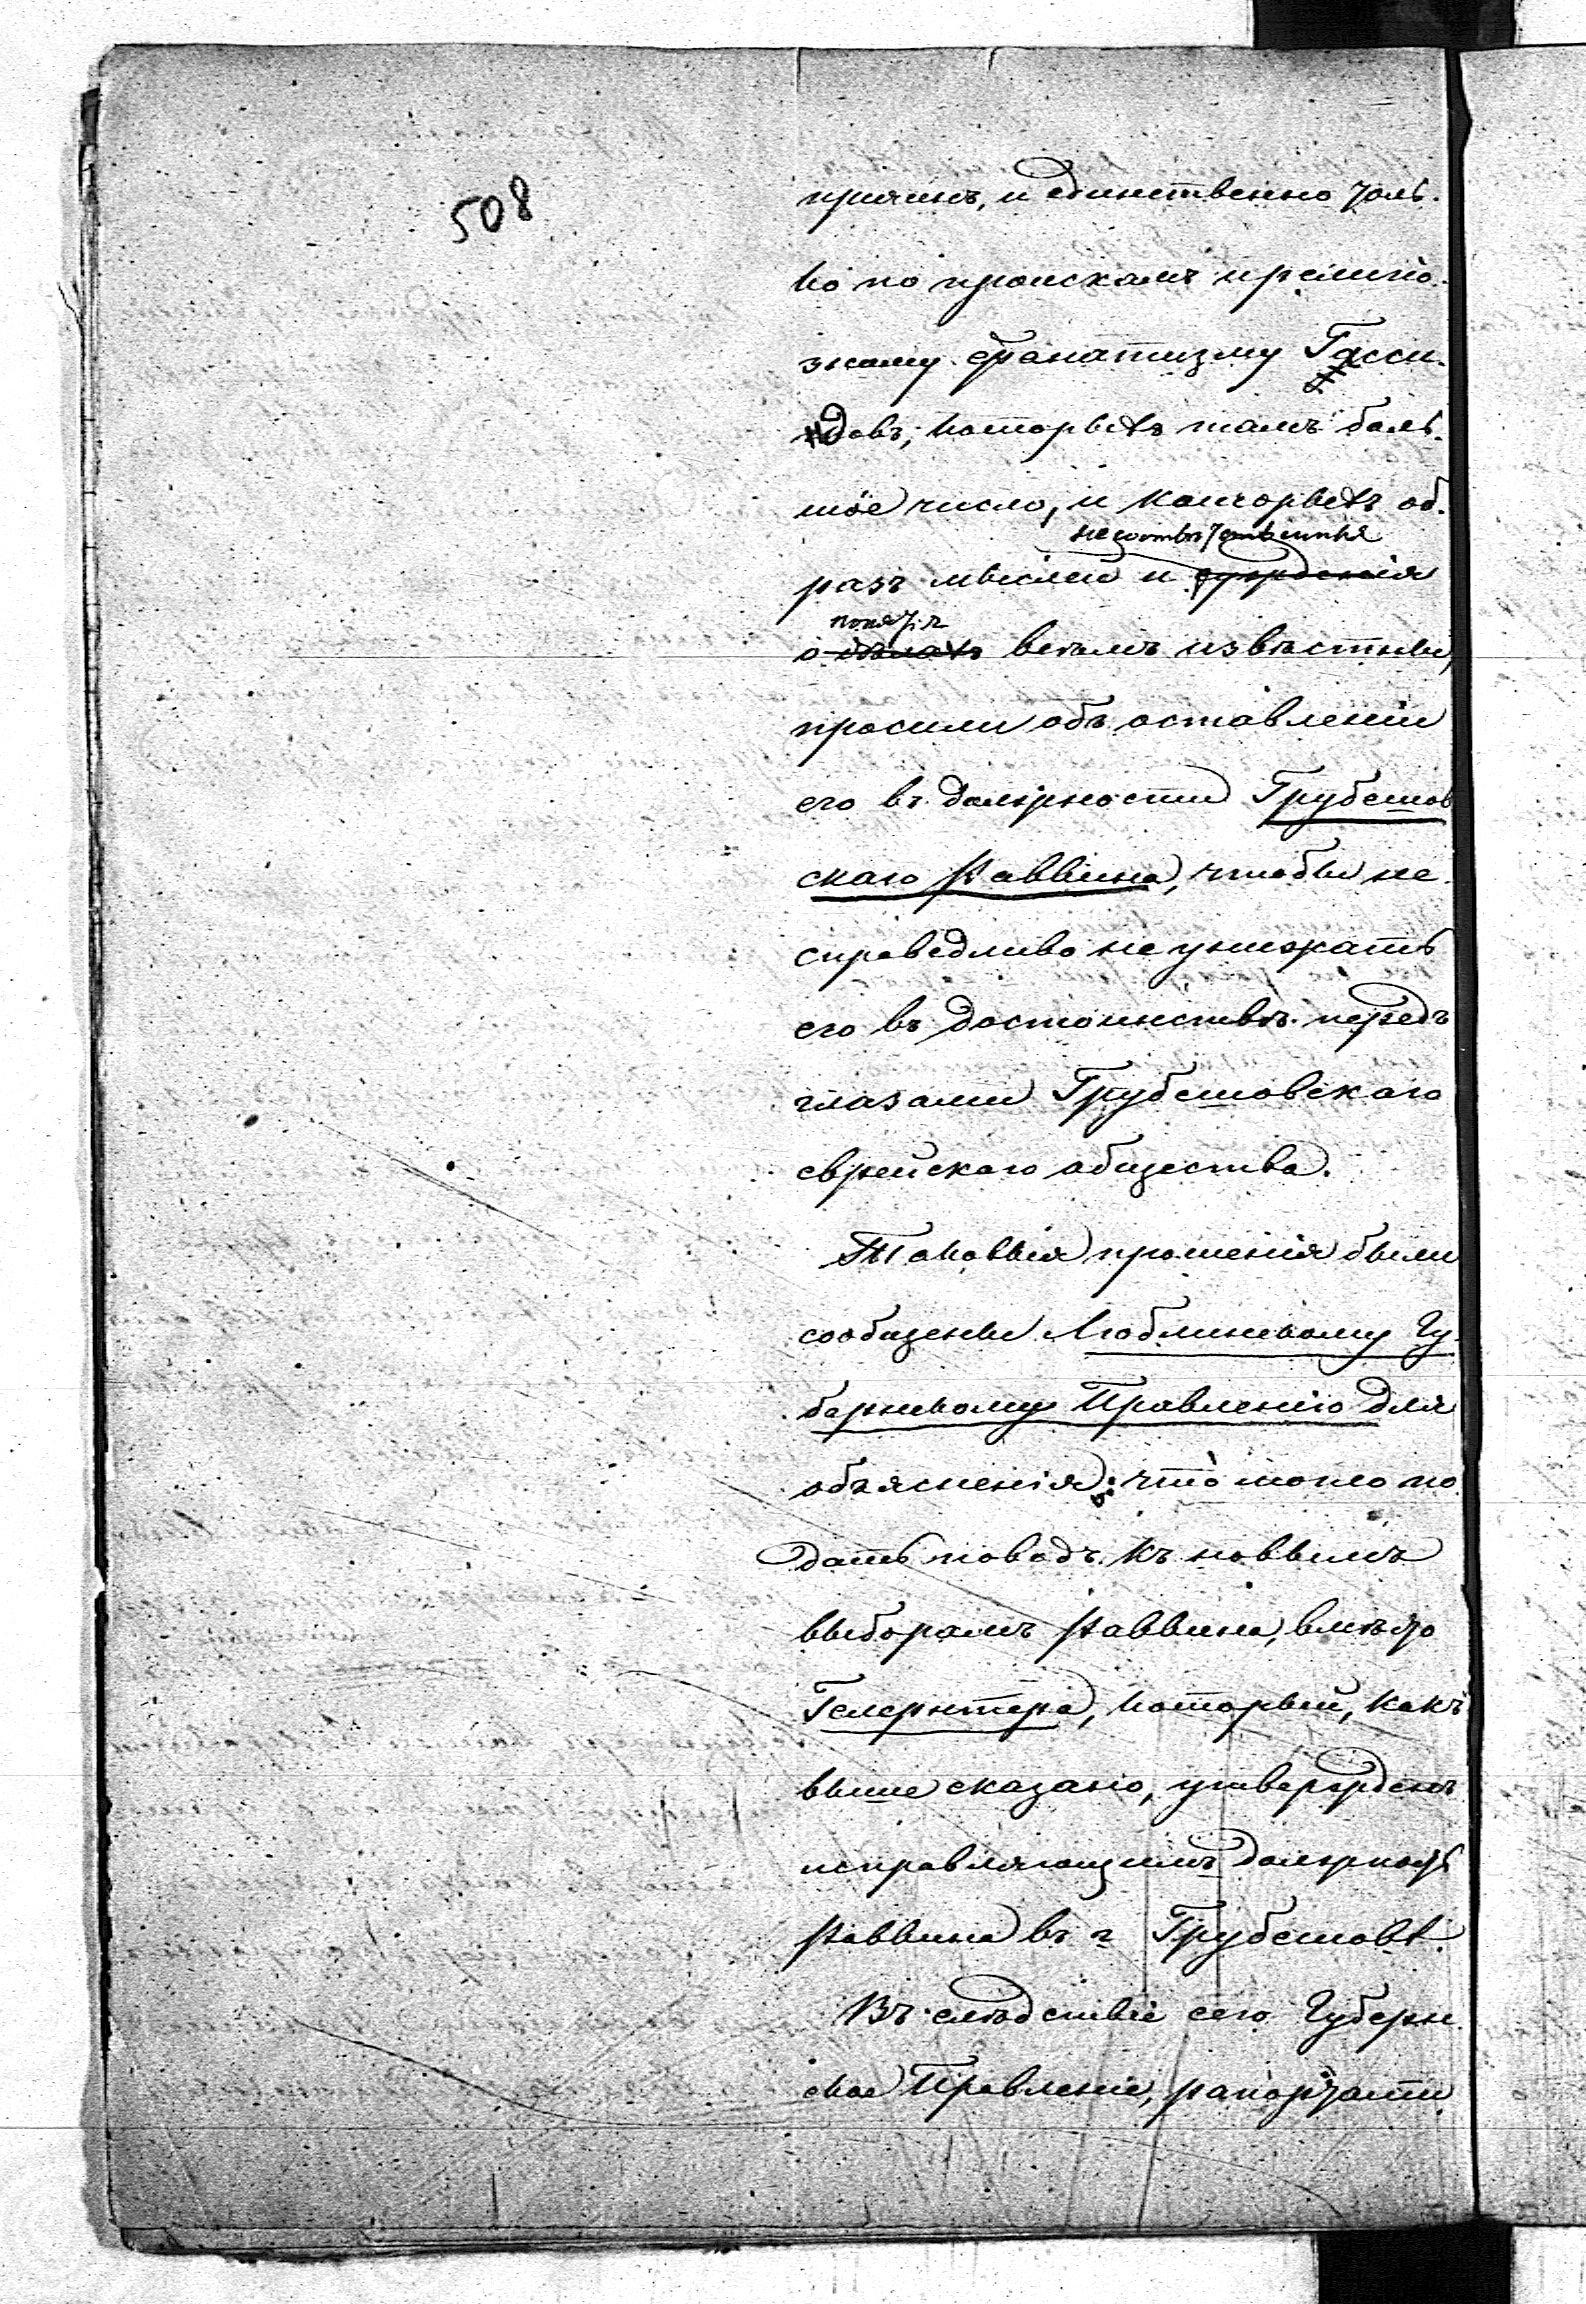 508
причинъ, и единственно толь-
ко по проискамъ и религіо-
зному фанатизму Гасси-
довъ, которыхъ тамъ боль-
шое число, и которыхъ об-
разъ мыслей и сужденія
понятія
о дѣлахъ всѣмъ извѣстны,
просили объ оставленіи
его въ должности Грубешов
скаго Раввина, чтобы не-
справедливо не унижать
его въ достоинствѣ передъ
глазами Грубешовскаго
еврейскаго общества.
Таковыя прошенія были
сообщены Люблинскому Гу-
бернскому Правленію для
объясненія: что могло по-
дать поводъ къ новымъ
выборамъ Раввина, вмѣсто
Гелернтера, который, какъ
выше сказано, утвержденъ
исправляющимъ должность
Раввина въ г Грубешовѣ.
Въ слѣдствіе сего Губерн-
ское Правленіе, рапортами